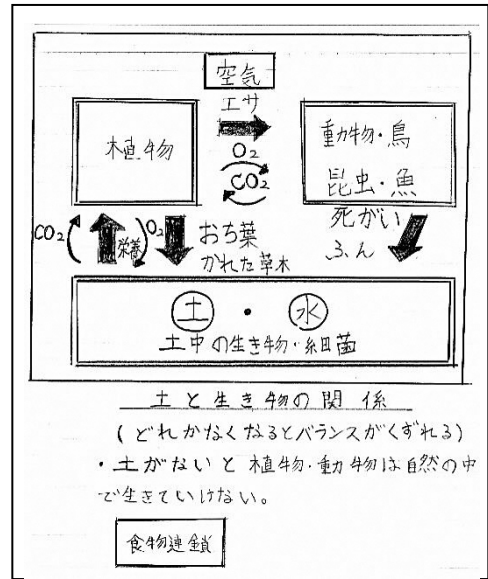 空気
エサ
植物
O₂
CO₂
動物・鳥
昆虫・魚
死がい
ふん
CO₂
栄養
O₂
おち葉
かれた草木
土・水
土中の生き物・細菌
土と生き物の関係
(どれかなくなるとバランスがくずれる)
・土がないと植物・動物は自然の中
で生きていけない。
食物連鎖